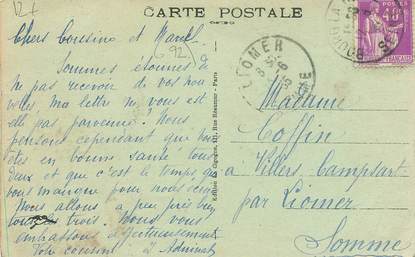 CARTE POSTALE
124
Chers Cousins et Marcel
692
Sommes étonnés de
ne pas recevoir de vos nou
velles ma lettre ne vous est
elle pas parvenue? Nous
pensons cependant que vous
êtes en bonne santé tous
deux et que c'est le temps qui
vous manque pour nous écrire
Nous allons à peu près bien
tous trois. Nous vous
embrassons affectueusement
Votre cousin
LIOMER
SOMME
40
Madame
Coffin
à Villers Campsart
par Liomer
Somme